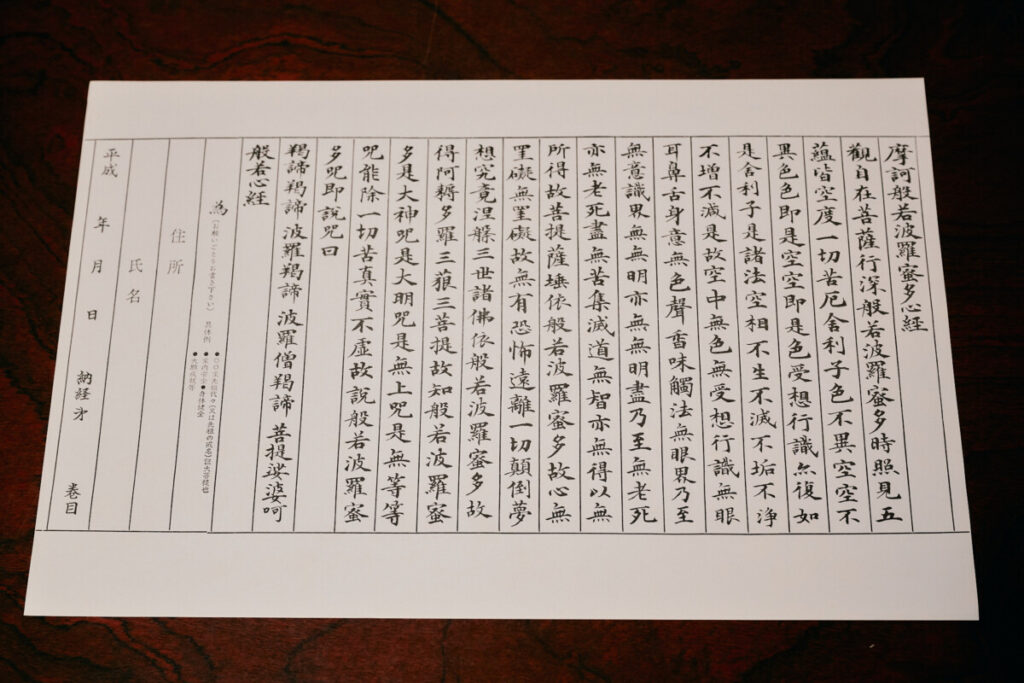 摩訶般若波羅蜜多心経
觀自在菩薩行深般若波羅蜜多時照見五
蘊皆空度一切苦厄舎利子色不異空空不
異色色即是空空即是色受想行識亦復如
是舎利子是諸法空相不生不滅不垢不浄
不増不減是故空中無色無受想行識無眼
耳鼻舌身意無色聲香味觸法無眼界乃至
無意識界無無明亦無無明盡乃至無老死
亦無老死盡無苦集滅道無智亦無得以無
所得故菩提薩埵依般若波羅蜜多故心無
罣礙無罣礙故無有恐怖遠離一切顛倒夢
想究竟涅槃三世諸佛依般若波羅蜜多故
得阿耨多羅三藐三菩提故知般若波羅蜜
多是大神呪是大明呪是無上呪是無等等
呪能除一切苦真實不虚故説般若波羅蜜
多呪即説呪曰
羯諦羯諦 波羅羯諦 波羅僧羯諦 菩提娑婆呵
般若心経
為(お願いごとをお書き下さい) 具体例
●〇〇家先祖代々(又は先祖の戒名)
●家内安全●身体健全
●大願成就等
住所
氏名
平成 年 月 日 納経 巻目